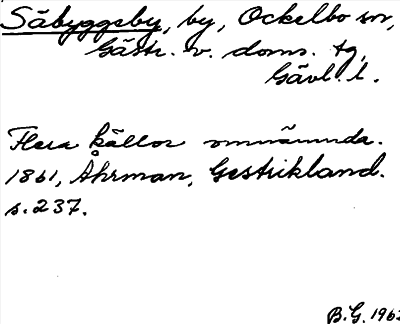 Säbyggeby, by, Ockelbo sn,
Gästr. v. doms. tg,
Gävl. l.
Flera källor omnämnda.
1861, Åhrman, Gestrikland.
s. 237.
B.G. 1963